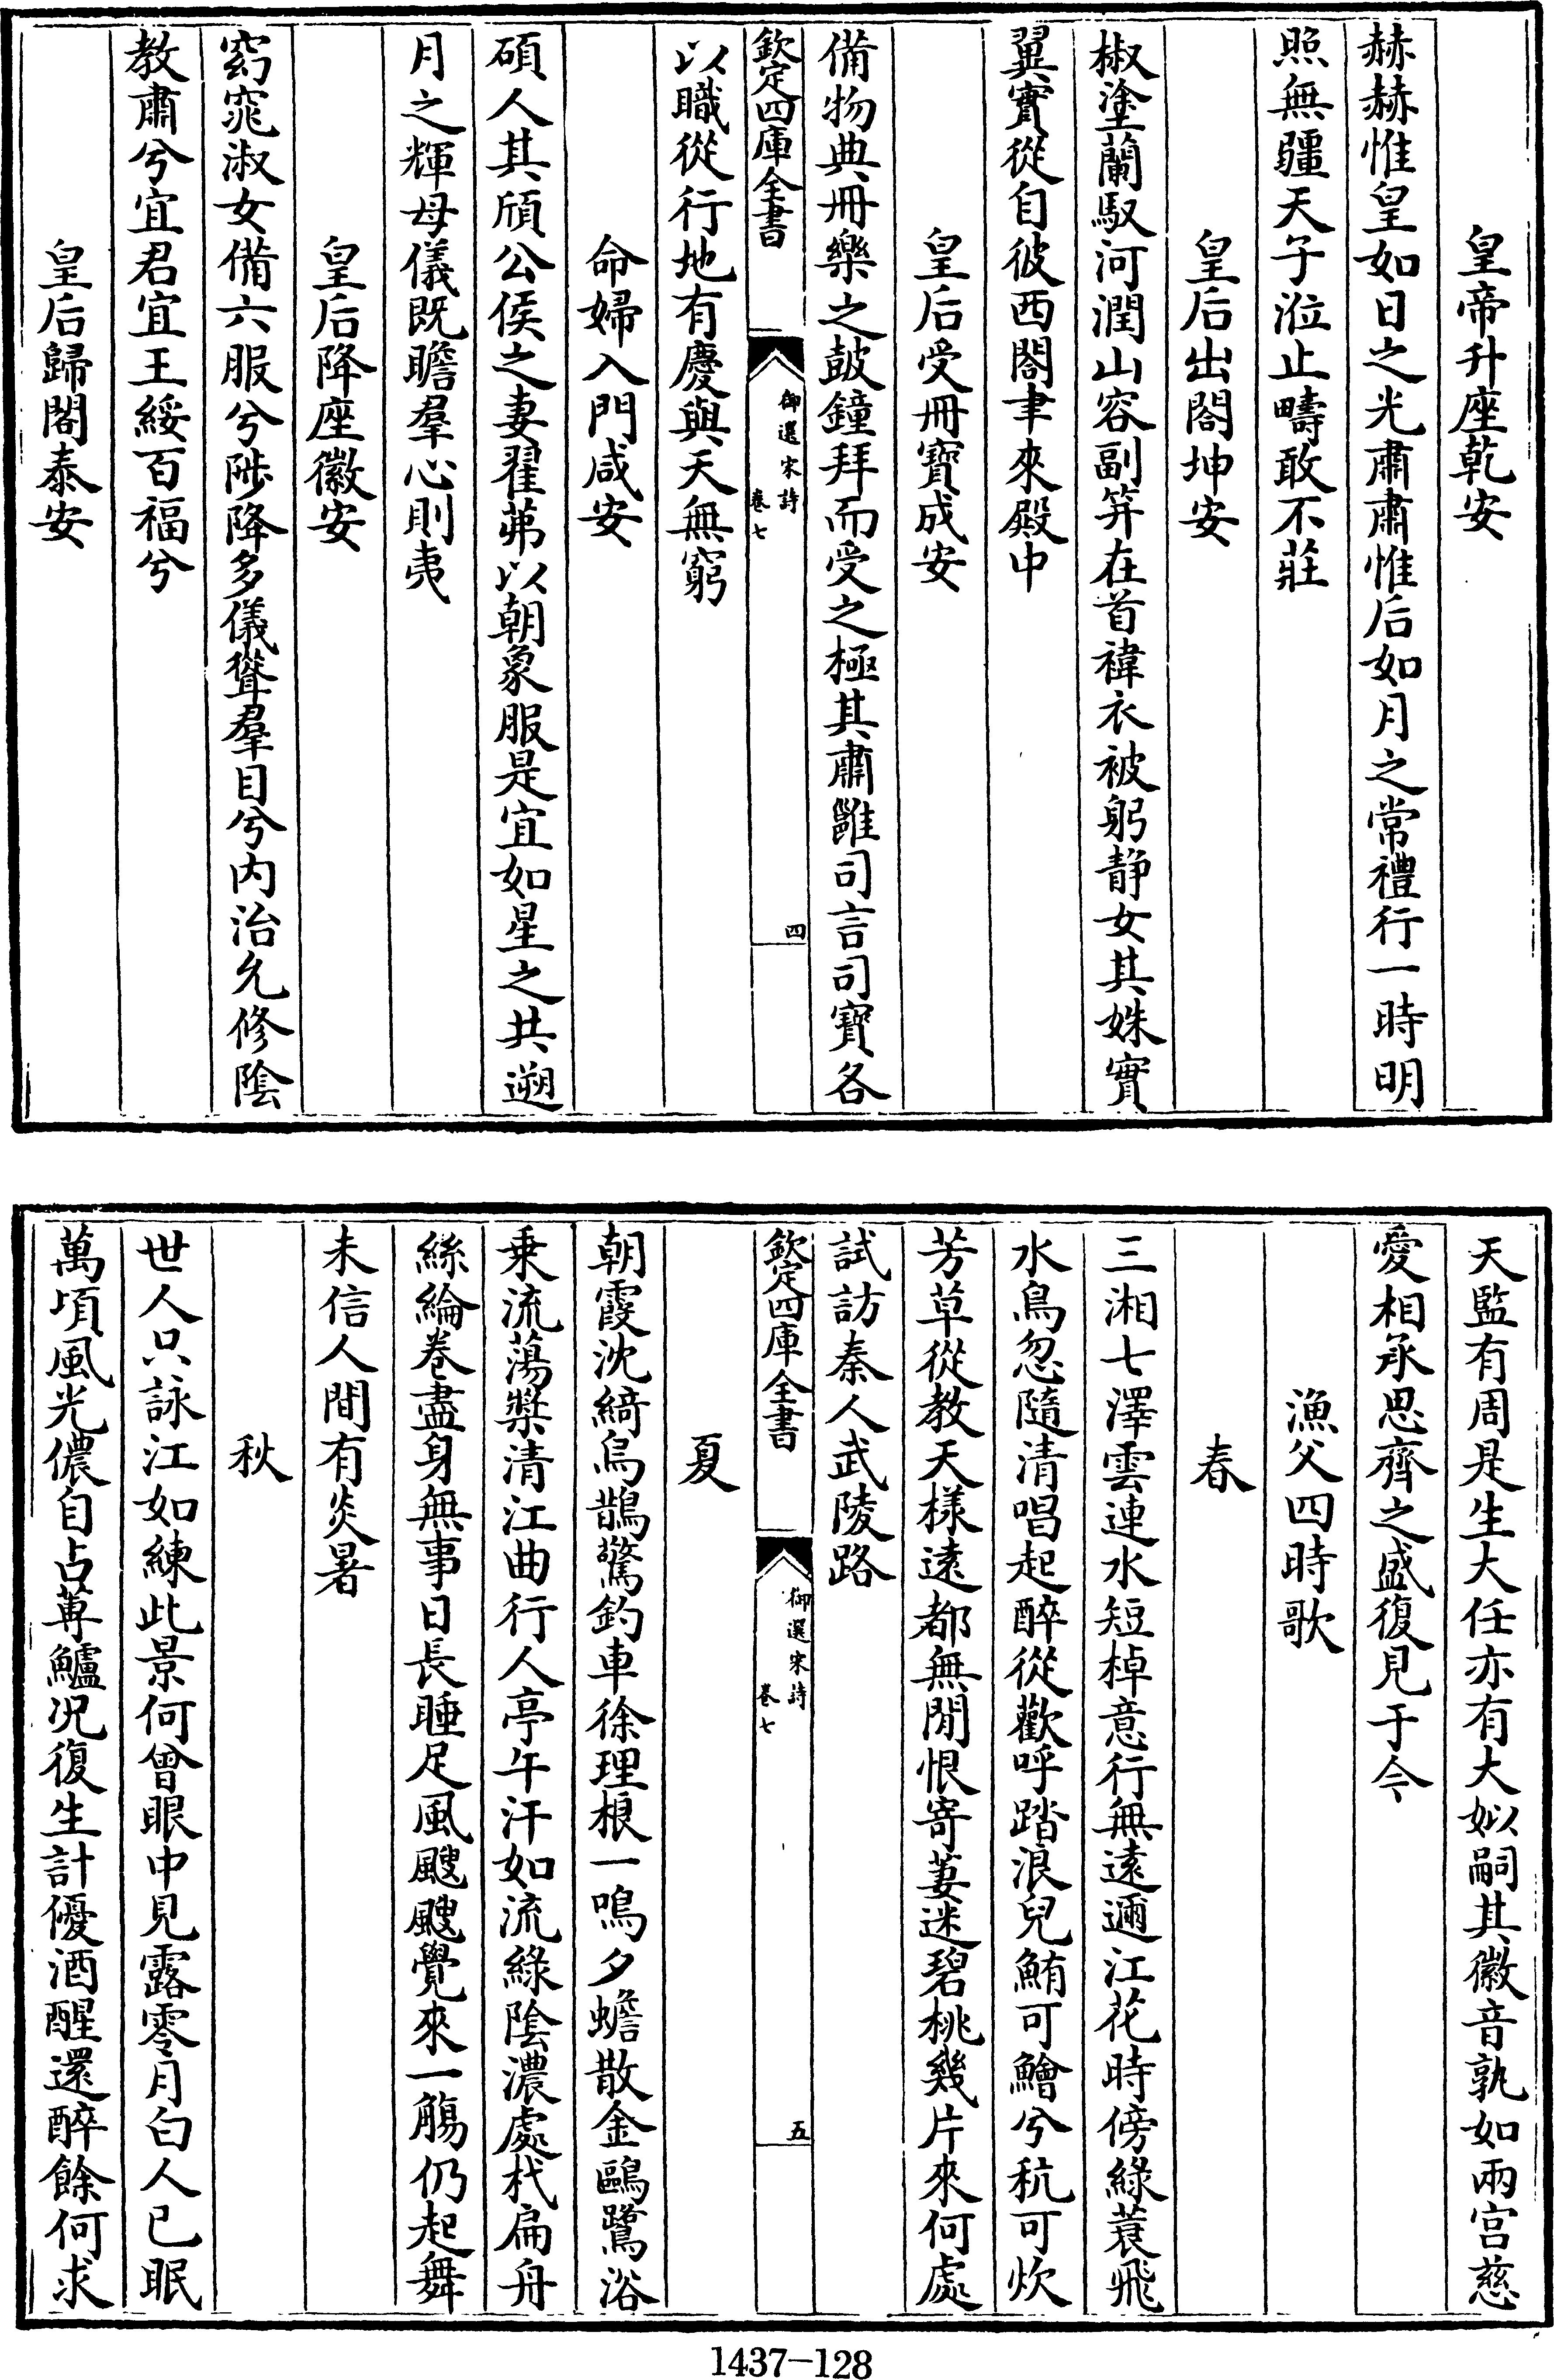 皇帝升座乾安
赫赫惟皇如日之光肅肅惟后如月之常禮行一時明
照無疆天子涖止疇敢不莊
皇后出閤坤安
椒塗蘭馭河潤山容副筓在首褘衣被躬靜女其姝實
翼實從自彼西閤聿來殿中
皇后受冊寶成安
備物典冊樂之鼓鐘拜而受之極其肅雝司言司寶各
欽定四庫全書
御選宋詩
卷七
四
以職從行地有慶與天無窮
命婦入門咸安
碩人其頎公侯之妻翟茀以朝象服是宜如星之共遡
月之輝母儀既瞻羣心則夷
皇后降座徽安
窈窕淑女備六服兮陟降多儀聳羣目兮内治允修陰
教肅兮宜君宜王綏百福兮
皇后歸閤泰安
天監有周是生大任亦有大姒嗣其徽音孰如兩宫慈
愛相承思齊之盛復見于今
漁父四時歌
春
三湘七澤雲連水短棹意行無遠邇江花時傍綠蓑飛
水鳥忽隨清唱起醉從歡呼踏浪兒鮪可鱠兮秔可炊
芳草從教天様遠都無閒恨寄萋迷碧桃幾片來何處
試訪秦人武陵路
欽定四庫全書
御選宋詩
卷七
五
夏
朝霞沈綺烏鵲驚釣車徐理桹一鳴夕蟾散金鷗鷺浴
乗流蕩槳清江曲行人亭午汗如流綠陰濃處杙扁舟
絲綸卷盡身無事日長睡足風颼颼覺來一觴仍起舞
未信人間有炎暑
秋
世人只詠江如練此景何曾眼中見露零月白人已眠
萬頃風光儂自占蓴鱸況復生計優酒醒還醉餘何求
1437-128